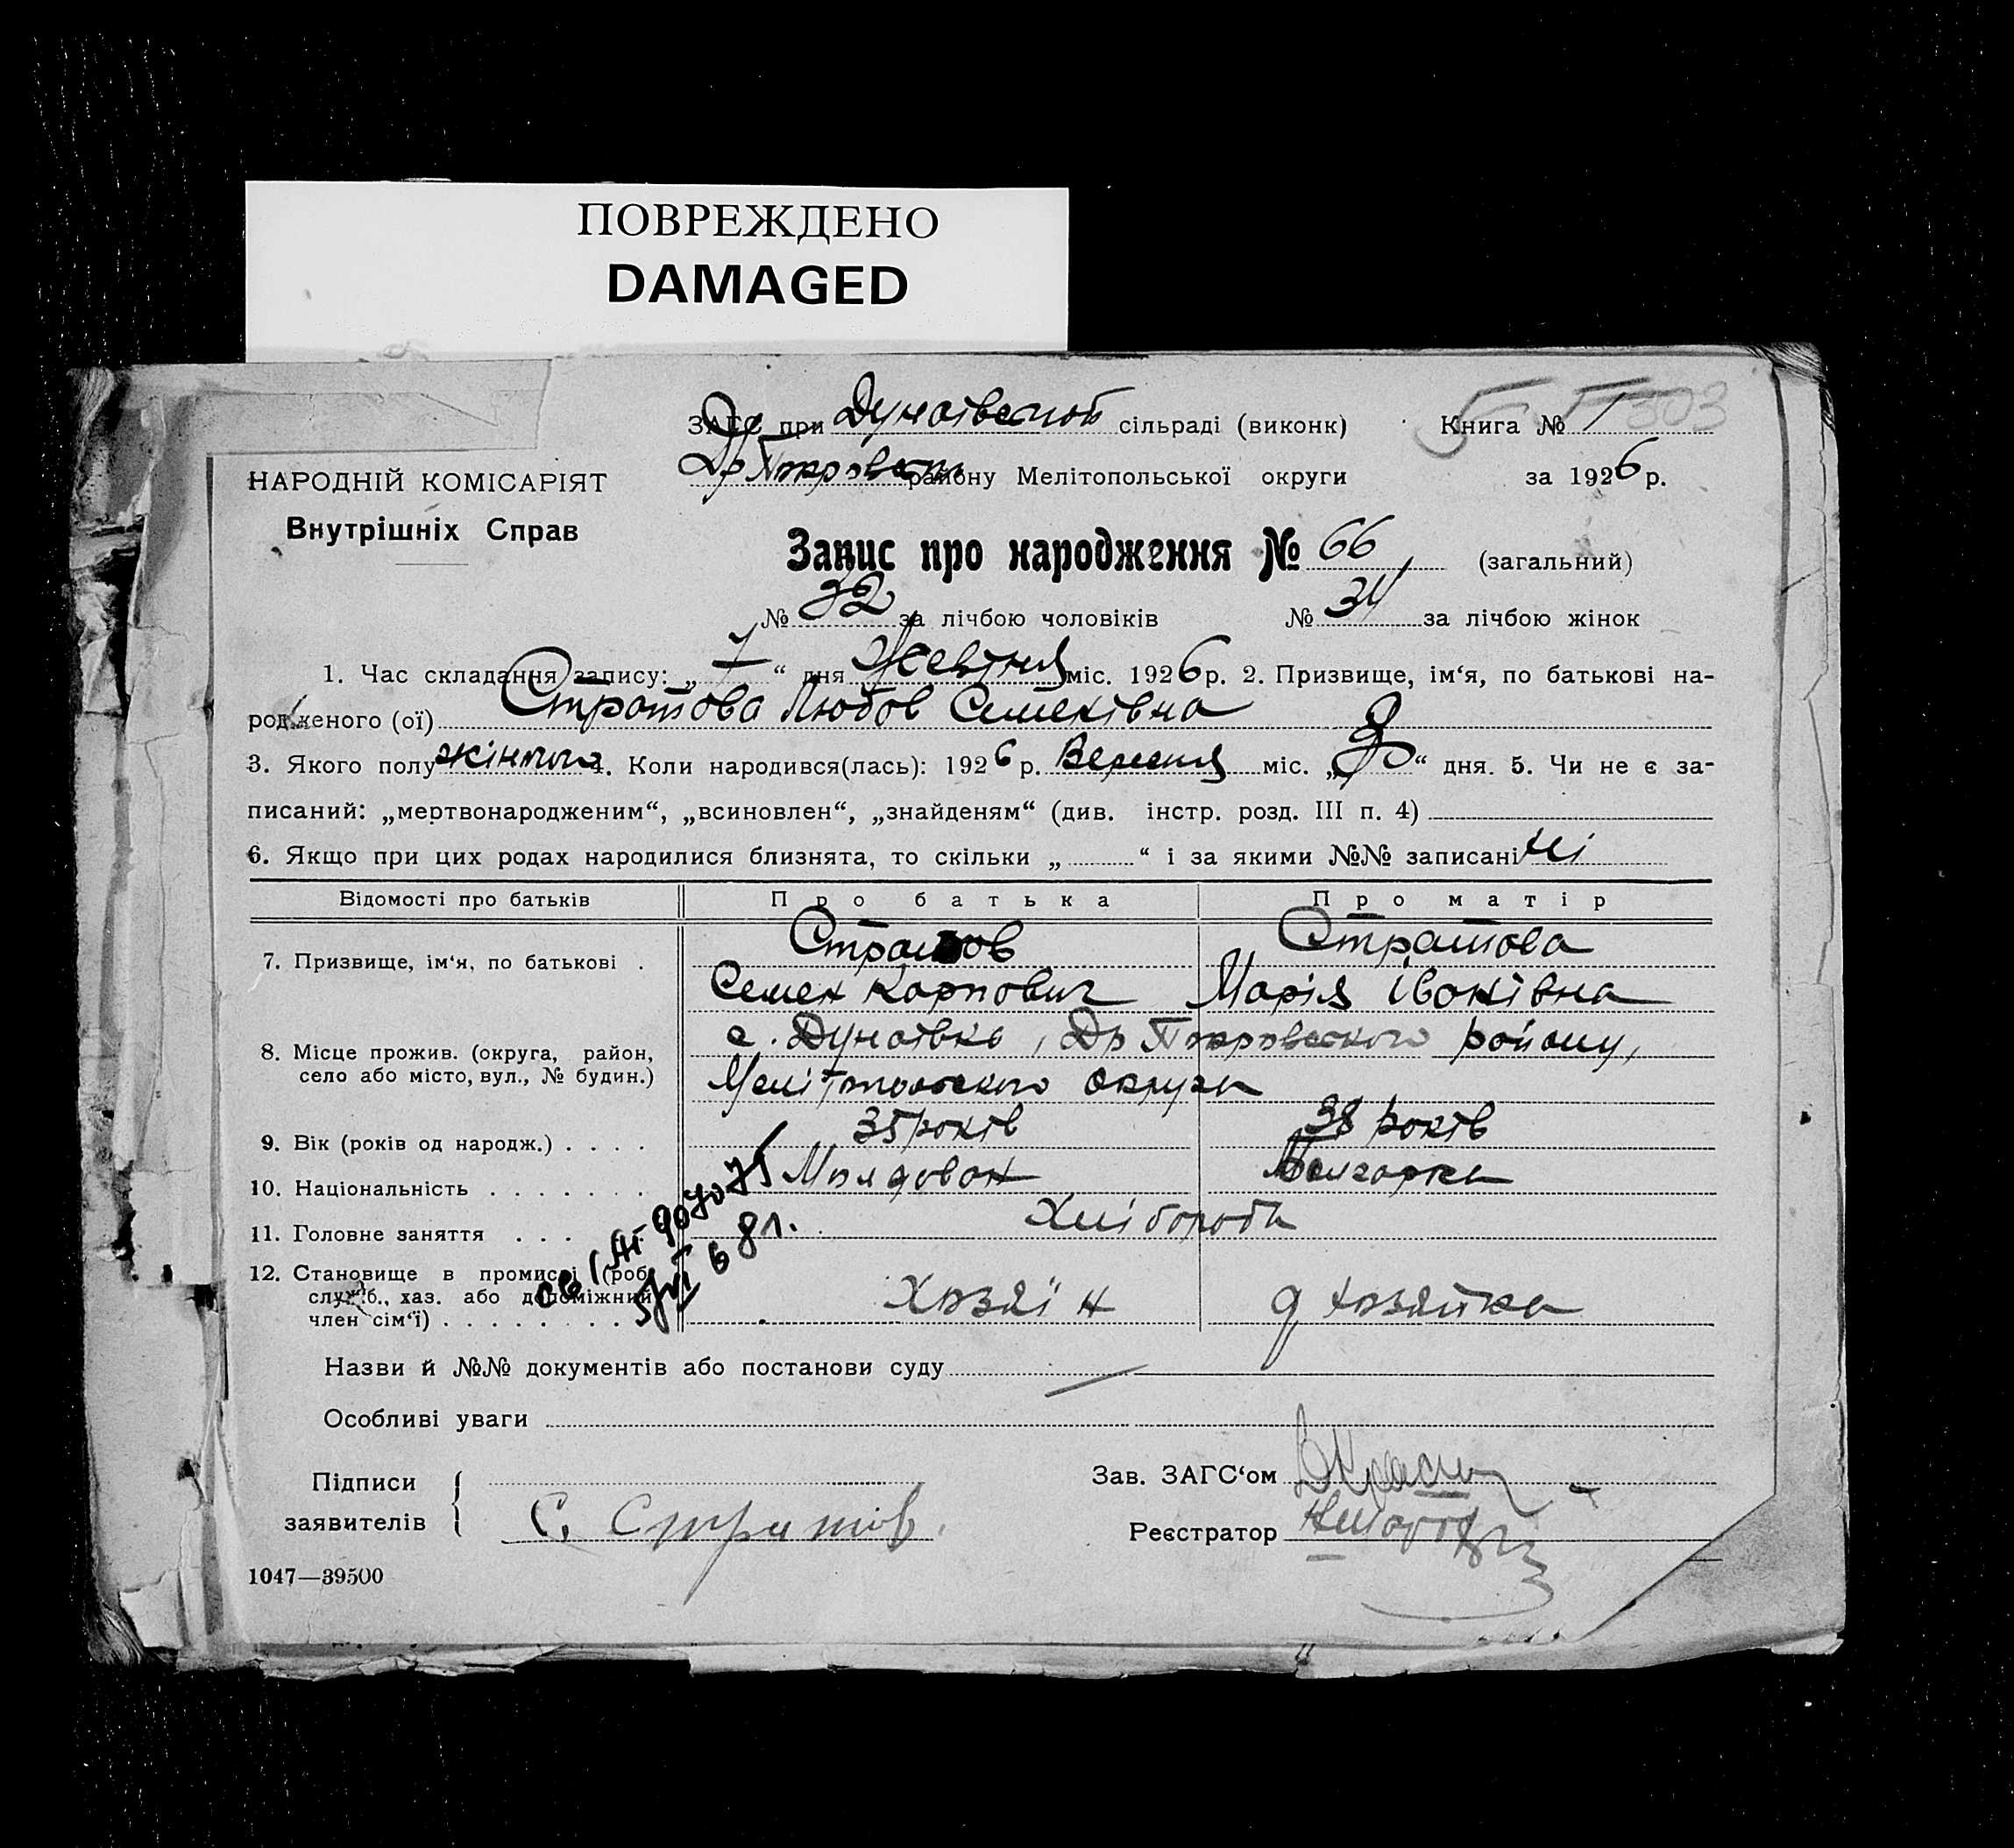 ПОВРЕЖДЕНО
DAMAGED
ЗАГС при Дунаївской сільраді (виконк) Книга № 1
Др Покровськ району Мелітопольської округи за 1926 р.
НАРОДНІЙ КОМІСАРІЯТ
Внутрішніх Справ
Запис про народження № 66 (загальний)
№ 32 за лічбою чоловіків № 34 за лічбою жінок
1. Час складання запису: „7“ дня Жовтня міс. 1926 р. 2. Призвище, ім‘я, по батькові на-
родженого (ої) Стратова Любов Семенівна
3. Якого полу жіночого 4. Коли народився(лась): 1926 р. Вересня міс. „8“ дня. 5. Чи не є за-
писаний: „мертвонародженим“, „всиновлен“, „знайденям“ (див. інстр. розд. III п. 4)
6. Якщо при цих родах народилися близнята, то скільки „ “ і за якими №№ записані Ні
Відомості про батьків Про батька Про матір
7. Призвище, ім‘я, по батькові . Стратов Стратова
Семен Карпович Марія Іванівна
8. Місце прожив. (округа, район, с. Дунаївка, Др Покровского району,
село або місто, вул., № будин.) Мелітопольского округа
9. Вік (років од народж.) . . . . 35 років 38 років
10. Національність . . . . . . . Молдован Болгарка
11. Головне заняття . . . Хлібороби
12. Становище в промислі (роб.
служб., хаз. або допоміжний Хазяїн д хозяйка
член сім‘ї) . . . . . . . .
81.
Назви й №№ документів або постанови суду
Особливі уваги
Підписи Зав. ЗАГС‘ом
заявителів С. Стратов. Реєстратор
1047—39500